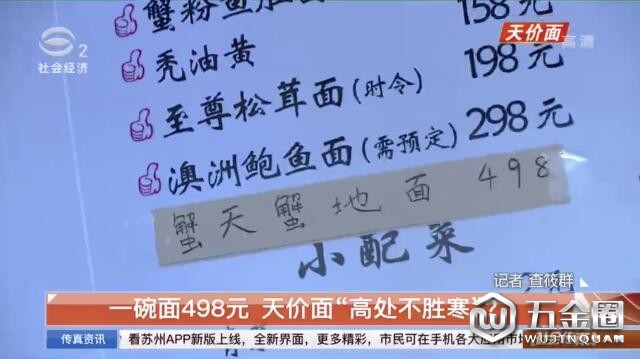 蟹粉鱼肚面 158元
天价面
高清
2
社会经济
秃油黄 198元
至尊松茸面(时令) 298元
澳洲鲍鱼面(需预定)
蟹天蟹地面 498
小配菜
记者 查筱群
一碗面498元 天价面“高处不胜寒”
五金圈
WUJINQUAN
传真资讯
看苏州APP新版上线，全新界面，更多精彩，市民可在手机各大应用市场